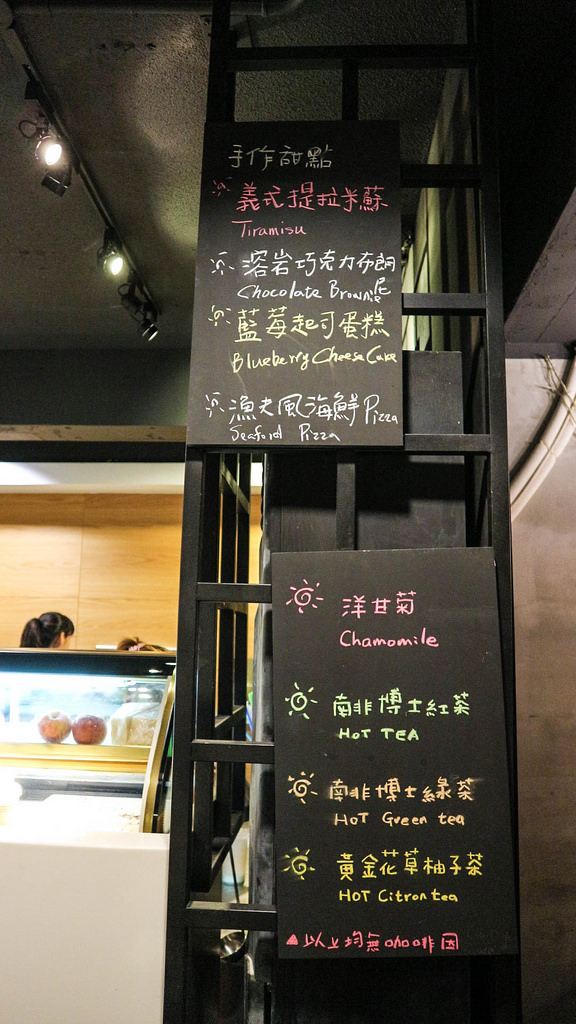 手作甜點
義式提拉米蘇
Tiramisu
溶岩巧克力布朗尼
Chocolate Brownie
藍莓起司蛋糕
Blueberry Cheese Cake
漁夫風海鮮Pizza
Seafood Pizza
洋甘菊
Chamomile
南非博士紅茶
HOT TEA
南非博士綠茶
HOT Green tea
黃金花草柚子茶
HOT Citron tea
▲以上均無咖啡因